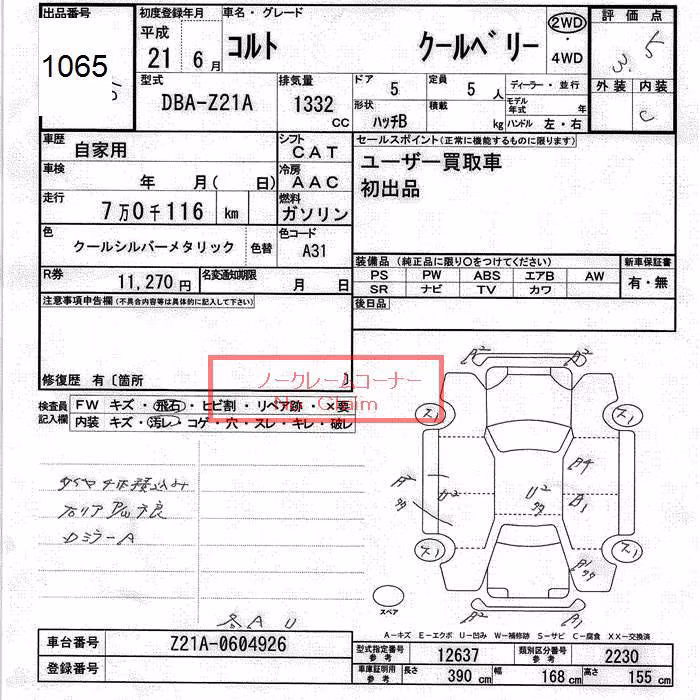 出品番号
1065
初度登録年月
平成
21 6 月
車名・グレード
コルト クールベリー
2WD
・
4WD
評価点
3.5
外装 内装
C
型式
DBA-Z21A
排気量
1332
CC
ドア
5
定員
5 人
形状
ハッチB
積載
kg
ディーラー・並行
モデル年式 年
ハンドル 左・右
車歴
自家用
シフト
CAT
車検
年 月( 日)
冷房
AAC
走行
7万0千116 km
燃料
ガソリン
色
クールシルバーメタリック 色替
色コード
A31
R券
11,270円
名変通知期限
月 日
セールスポイント(正常に機能するものに限ります)
ユーザー買取車
初出品
装備品(純正品に限り○をつけてください)
PS PW ABS エアB AW
SR ナビ TV カワ
新車保証書
有・無
後日品
注意事項申告欄(不具合内容等は具体的に記入して下さい)
修復歴 有〔箇所 〕
ノークレームコーナー
No Claim
検査員記入欄
FW キズ・飛石・ヒビ割・リペア跡・×要
内装 キズ・汚レ・コゲ・穴・スレ・キレ・破レ
ミラーA
A2 A2
ス1 ス1
A2
U2
U2
B4
B1
ス1 ス1
A2 B1
スペア
A U
A―キズ E―エクボ U―凹み W―補修跡 S―サビ C―腐食 XX―交換済
車台番号 Z21A-0604926
登録番号
型式指定番号 参考 12637
類別区分番号 参考 2230
車庫証明用 参考 長さ 390 cm 幅 168 cm 高さ 155 cm